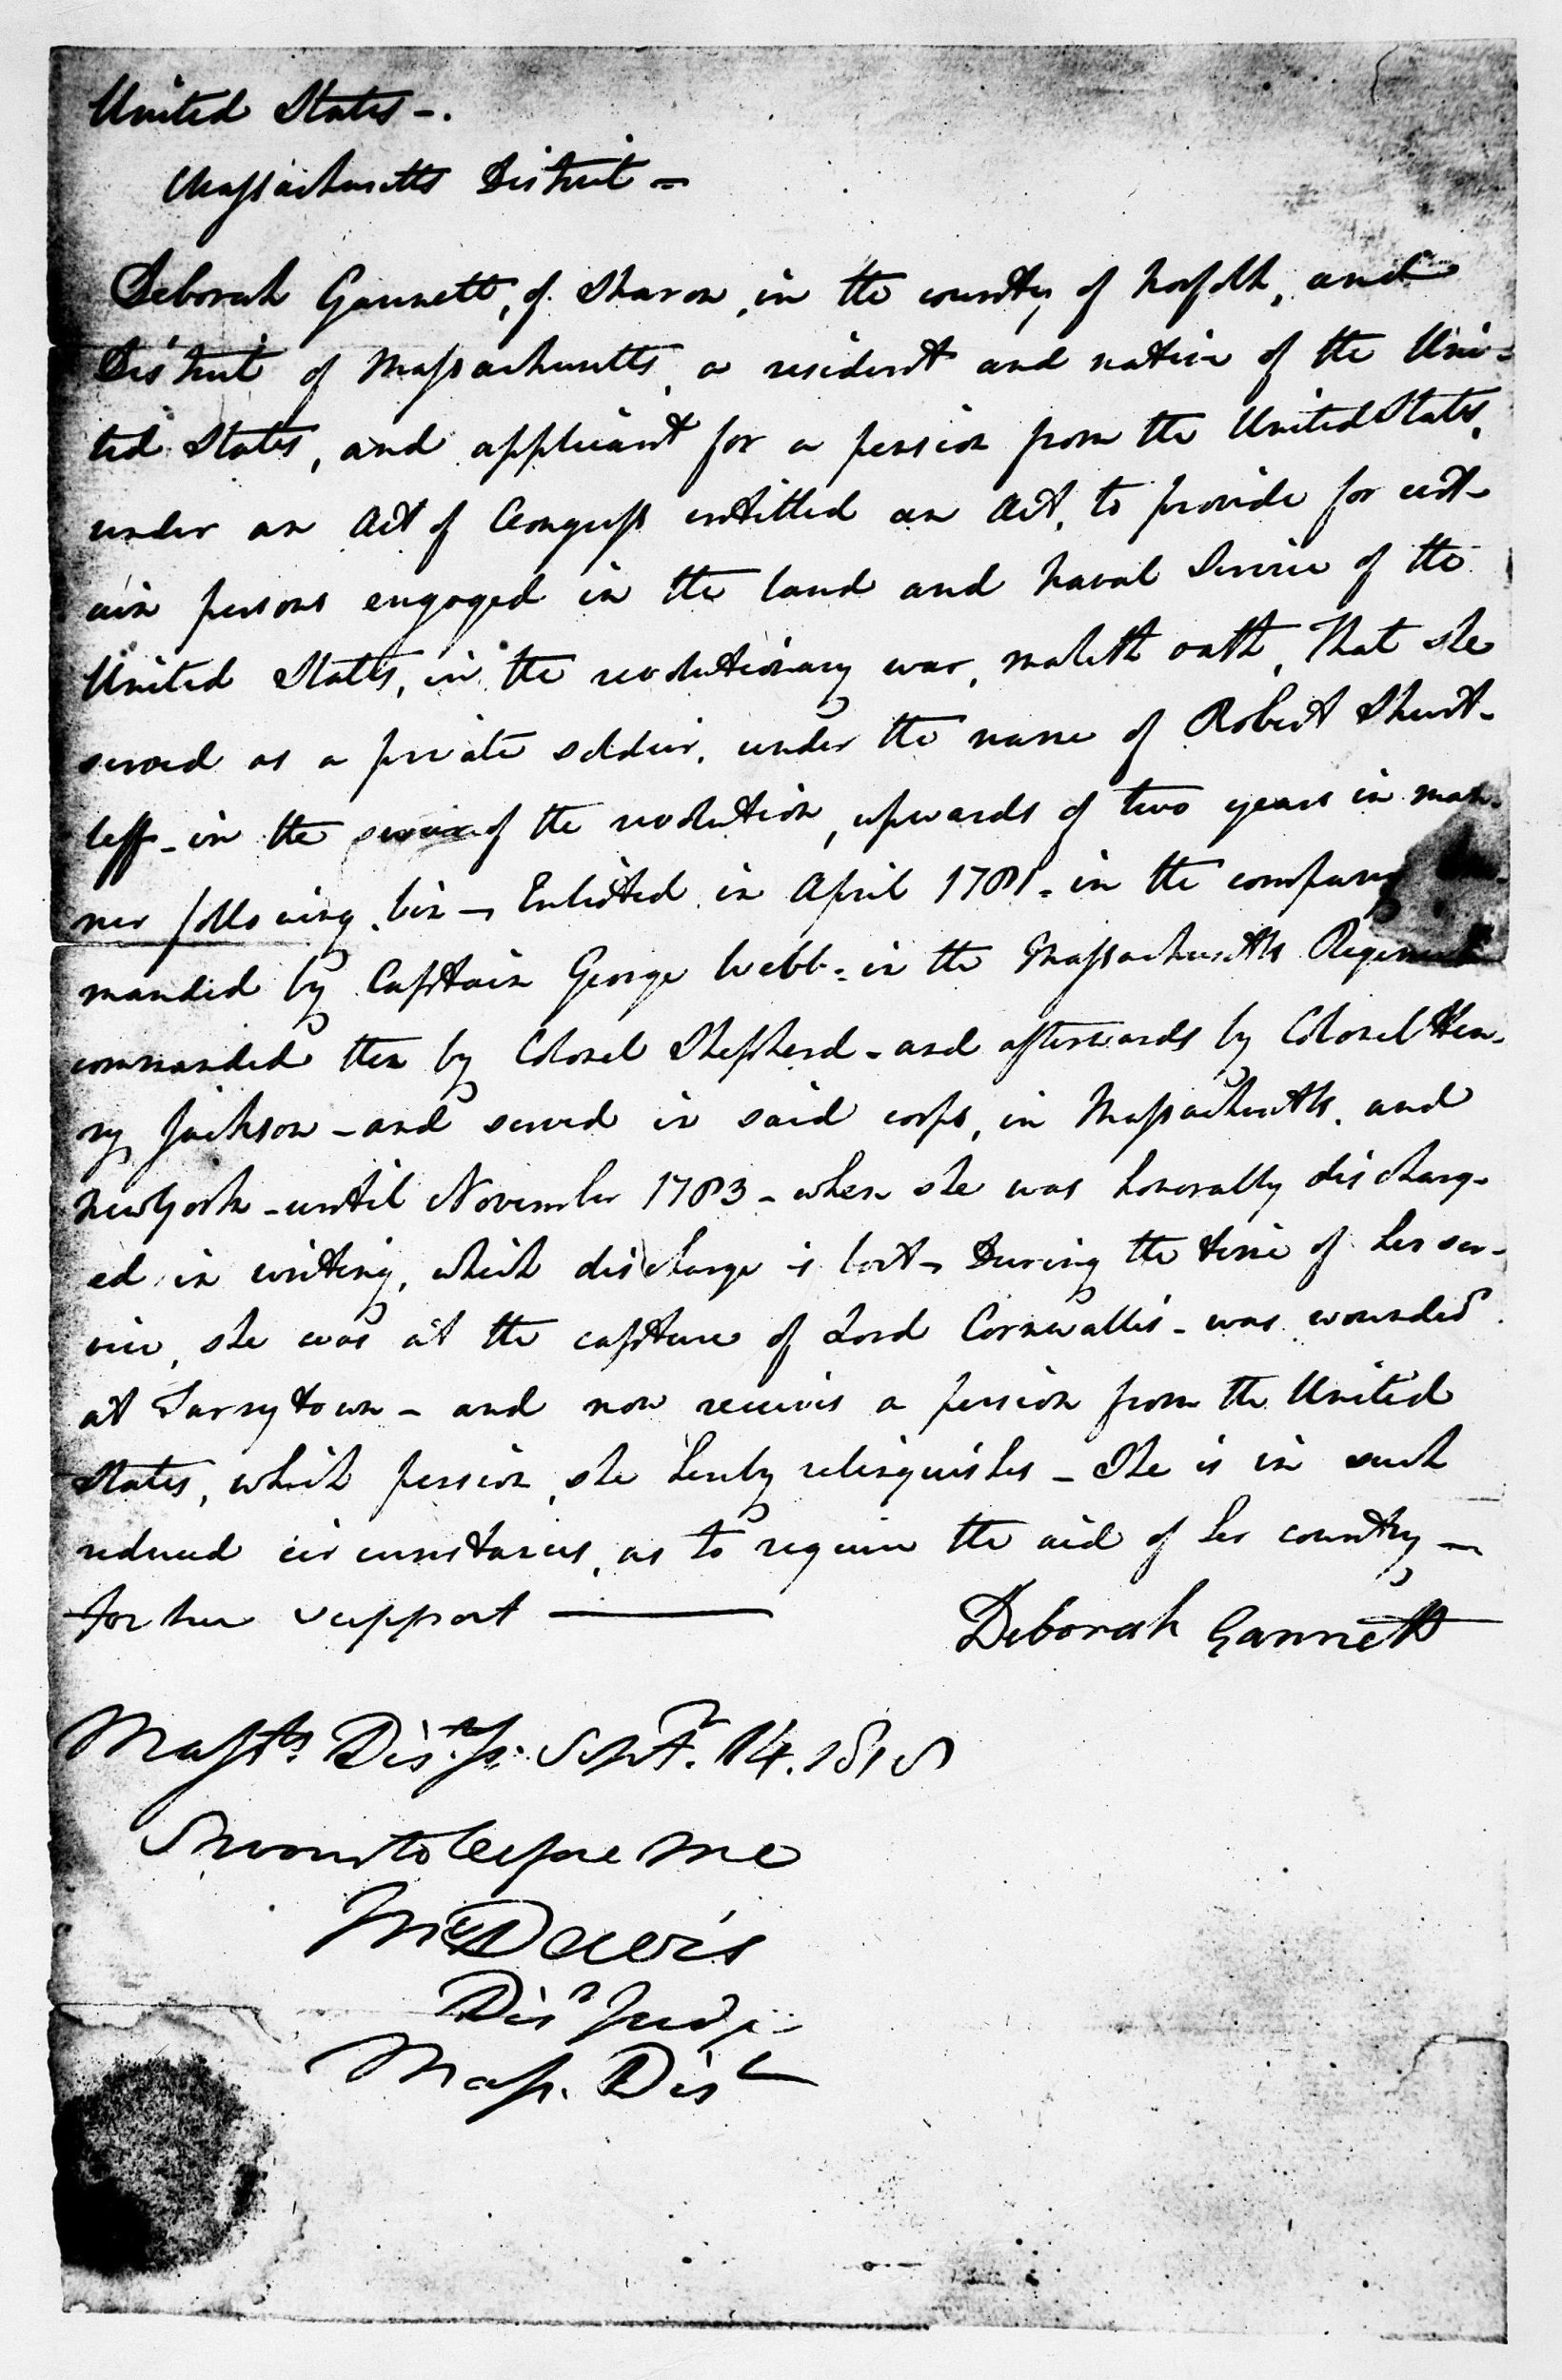 United States -.
Massachusetts District -
Deborah Gannett, of Sharon, in the county of Norfolk, and
District of Massachusetts, a resident and native of the Uni-
ted States, and applicant for a pension from the United States,
under an Act of Congress entitled an Act, to provide for cert-
ain persons engaged in the land and Naval Service of the
United States, in the revolutionary war, maketh oath, That she
served as a private soldier, under the name of Robert Shurt-
leff - in the service of the revolution, upwards of two years in man-
ner following. viz - Enlisted in April 1781 - in the company
manded by Captain George Webb - in the Massachusetts Regiment
commanded then by Colonel Shepherd - and afterwards by Colonel Hen-
ry Jackson - and served in said corps, in Massachusetts, and
New York - until November 1783 - when she was honorably discharg-
ed in writing, which discharge is lost - During the time of her ser-
vice, she was at the capture of Lord Cornwallis - was wounded
at Tarrytown - and now receives a pension from the United
States, which pension, she hereby relinquishes - She is in such
reduced circumstances, as to require the aid of her country -
for her support -
Deborah Gannett
Massts Dist. Sept. 14. 1818
Sworn to before me
Davis
Dis Judge
Mass. Dist